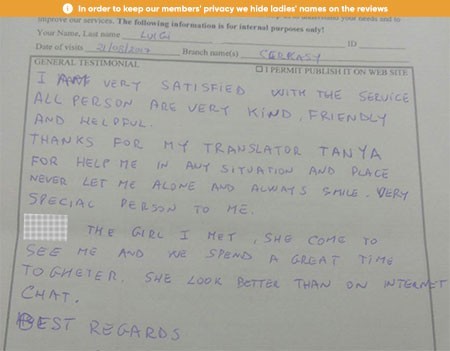 In order to keep our members' privacy we hide ladies' names on the reviews
improve our services. The following information is for internal purposes only!
Your Name, Last name LUIGI ID
Date of visits 21/08/2017 Branch name(s) CERKASY
GENERAL TESTIMONIAL I PERMIT PUBLISH IT ON WEB SITE
I AM VERY SATISFIED WITH THE SERVICE
ALL PERSON ARE VERY KIND, FRIENDLY
AND HELPFUL.
THANKS FOR MY TRANSLATOR TANYA
FOR HELP ME IN ANY SITUATION AND PLACE
NEVER LET ME ALONE AND ALWAYS SMILE. VERY
SPECIAL PERSON TO ME.
THE GIRL I MET, SHE COME TO
SEE ME AND WE SPEND A GREAT TIME
TOGHETER. SHE LOOK BETTER THAN ON INTERNET
CHAT.
BEST REGARDS